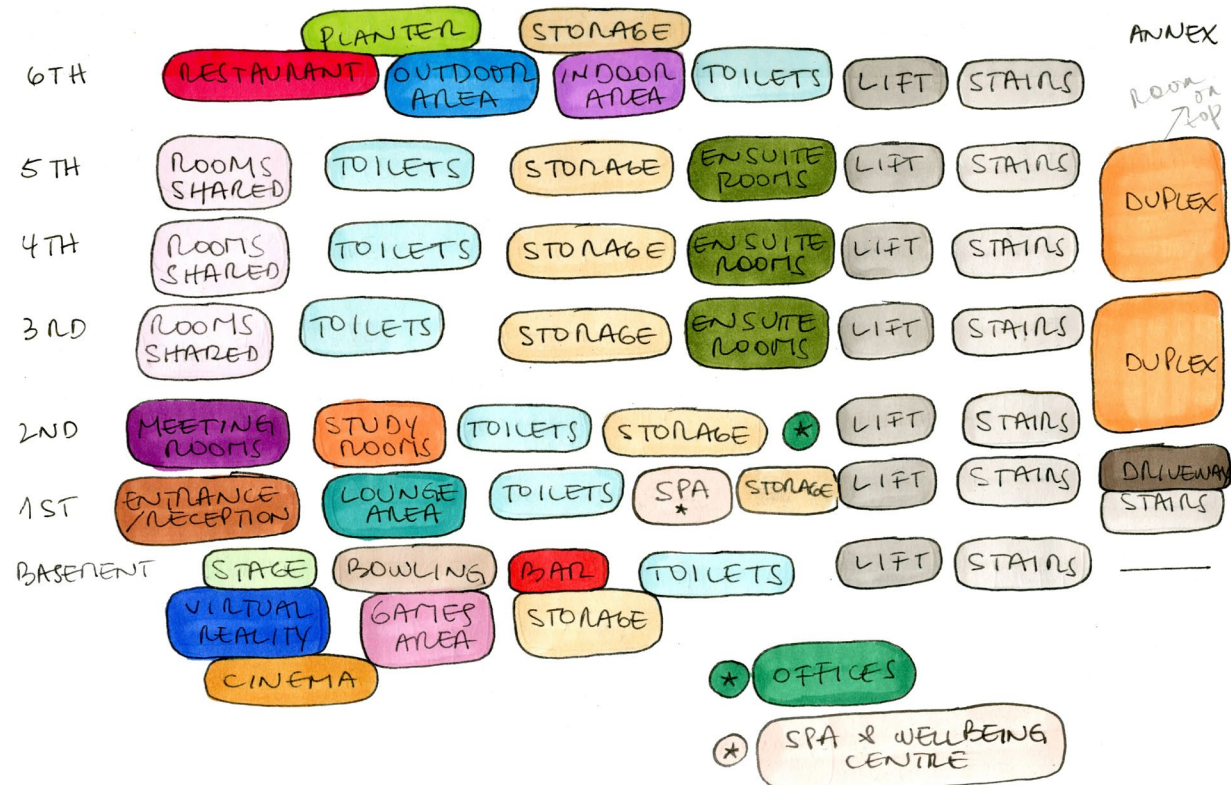 PLANTER STORAGE
ANNEX
6TH RESTAURANT OUTDOOR AREA INDOOR AREA TOILETS LIFT STAIRS
ROOM ON TOP
5TH ROOMS SHARED TOILETS STORAGE ENSUITE ROOMS LIFT STAIRS
DUPLEX
4TH ROOMS SHARED TOILETS STORAGE ENSUITE ROOMS LIFT STAIRS
3RD ROOMS SHARED TOILETS STORAGE ENSUITE ROOMS LIFT STAIRS
DUPLEX
2ND MEETING ROOMS STUDY ROOMS TOILETS STORAGE * LIFT STAIRS
DRIVEWAY
1ST ENTRANCE /RECEPTION LOUNGE AREA TOILETS SPA * STORAGE LIFT STAIRS
STAIRS
BASEMENT STAGE BOWLING BAR TOILETS LIFT STAIRS
VIRTUAL REALITY GAMES AREA STORAGE
CINEMA
* OFFICES
* SPA & WELLBEING CENTRE